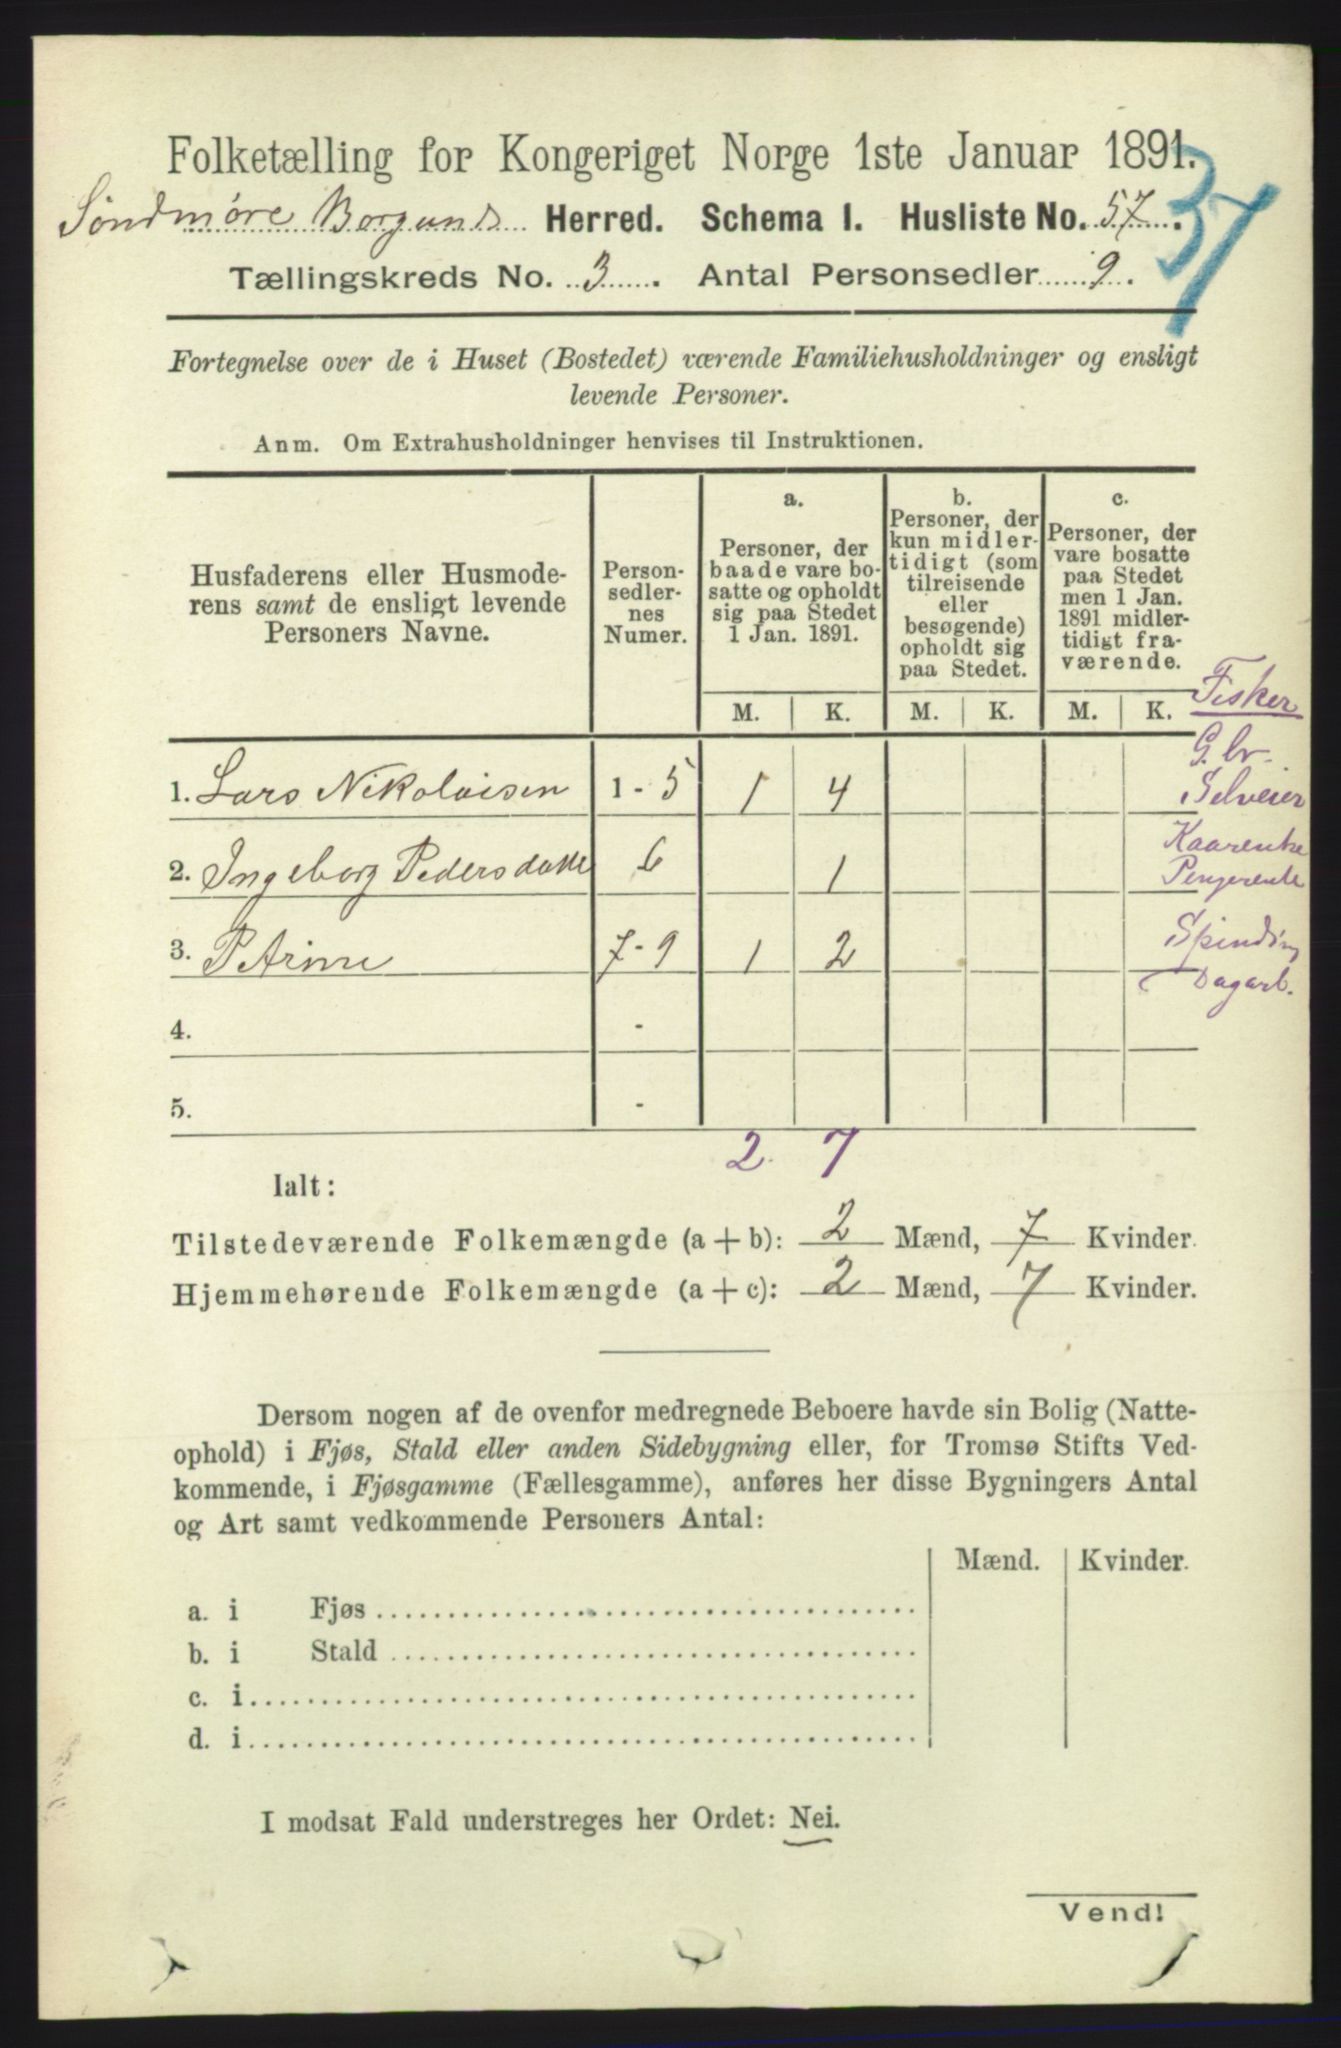 Folketælling for Kongeriget Norge 1ste Januar 1891.
37
Söndmøre Borgunds Herred. Schema I. Husliste No. 57.
Tællingskreds No. 3. Antal Personsedler 9.
Fortegnelse over de i Huset (Bostedet) værende Familiehusholdninger og ensligt
levende Personer.
Anm. Om Extrahusholdninger henvises til Instruktionen.
Husfaderens eller Husmode-
rens samt de ensligt levende
Personers Navne.
Person-
sedler-
nes
Numer.
a.
Personer, der
baade vare bo-
satte og opholdt
sig paa Stedet
1 Jan. 1891.
b.
Personer, der
kun midler-
tidigt (som
tilreisende
eller
besøgende)
opholdt sig
paa Stedet.
c.
Personer, der
vare bosatte
paa Stedet
men 1 Jan.
1891 midler-
tidigt fra-
værende.
M. K. M. K. M. K.
Fisker
G. br.
1. Lars Nikolaisen 1 - 5 1 4 Selveier
2. Ingeborg Pedersdatte 6 1 Kaarenke
Pengerente
3. P Arime 7 - 9 1 2 Spinding
Dagarb.
4. -
5. -
2. 7
Ialt:
Tilstedeværende Folkemængde (a + b): 2 Mænd, 7 Kvinder.
Hjemmehørende Folkemængde (a + c): 2 Mænd, 7 Kvinder.
Dersom nogen af de ovenfor medregnede Beboere havde sin Bolig (Natte-
ophold) i Fjøs, Stald eller anden Sidebygning eller, for Tromsø Stifts Ved-
kommende, i Fjøsgamme (Fællesgamme), anføres her disse Bygningers Antal
og Art samt vedkommende Personers Antal:
Mænd. Kvinder.
a. i Fjøs
b. i Stald
c. i
d. i
I modsat Fald understreges her Ordet: Nei.
Vend!